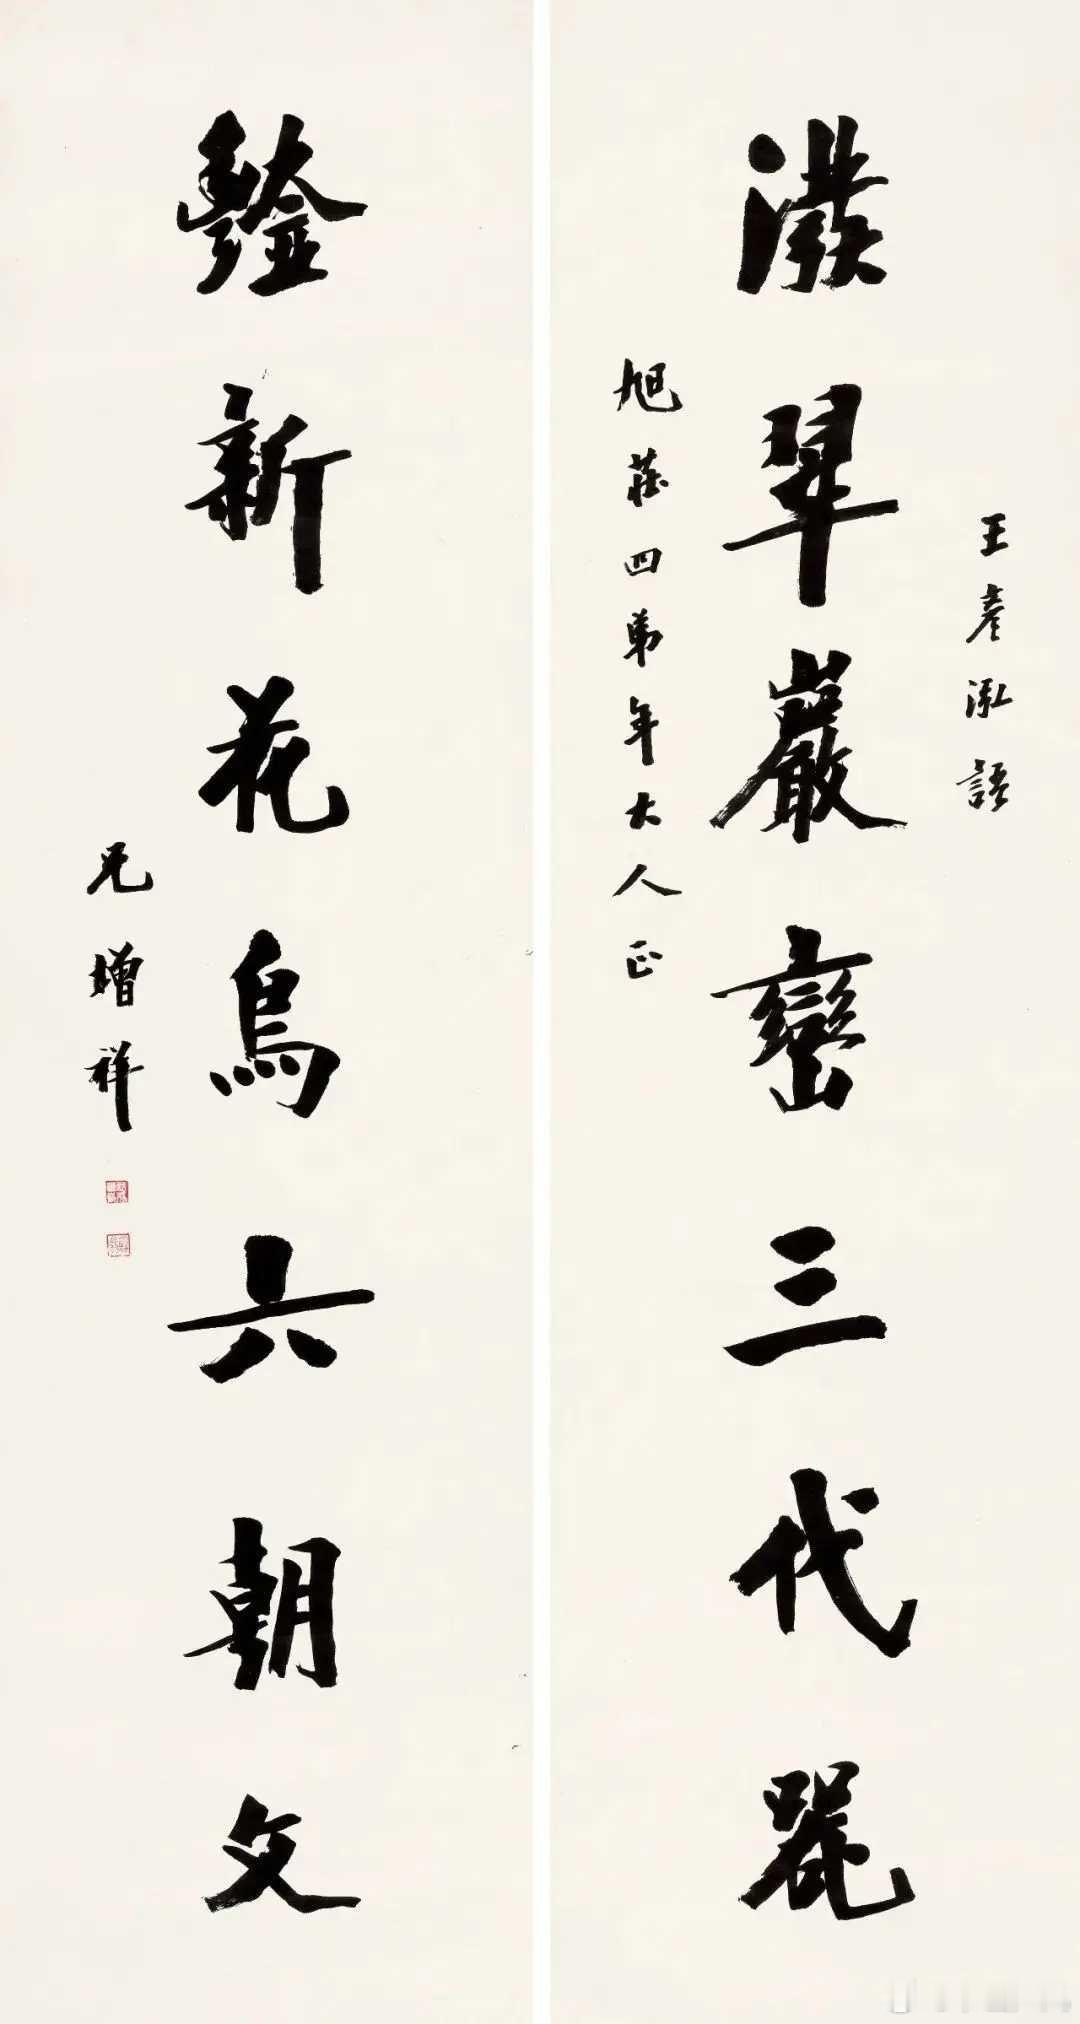 王彥泓語
潑翠巖巒三代器
旭莊四弟年大人正
新花鳥六朝文
兄增祥